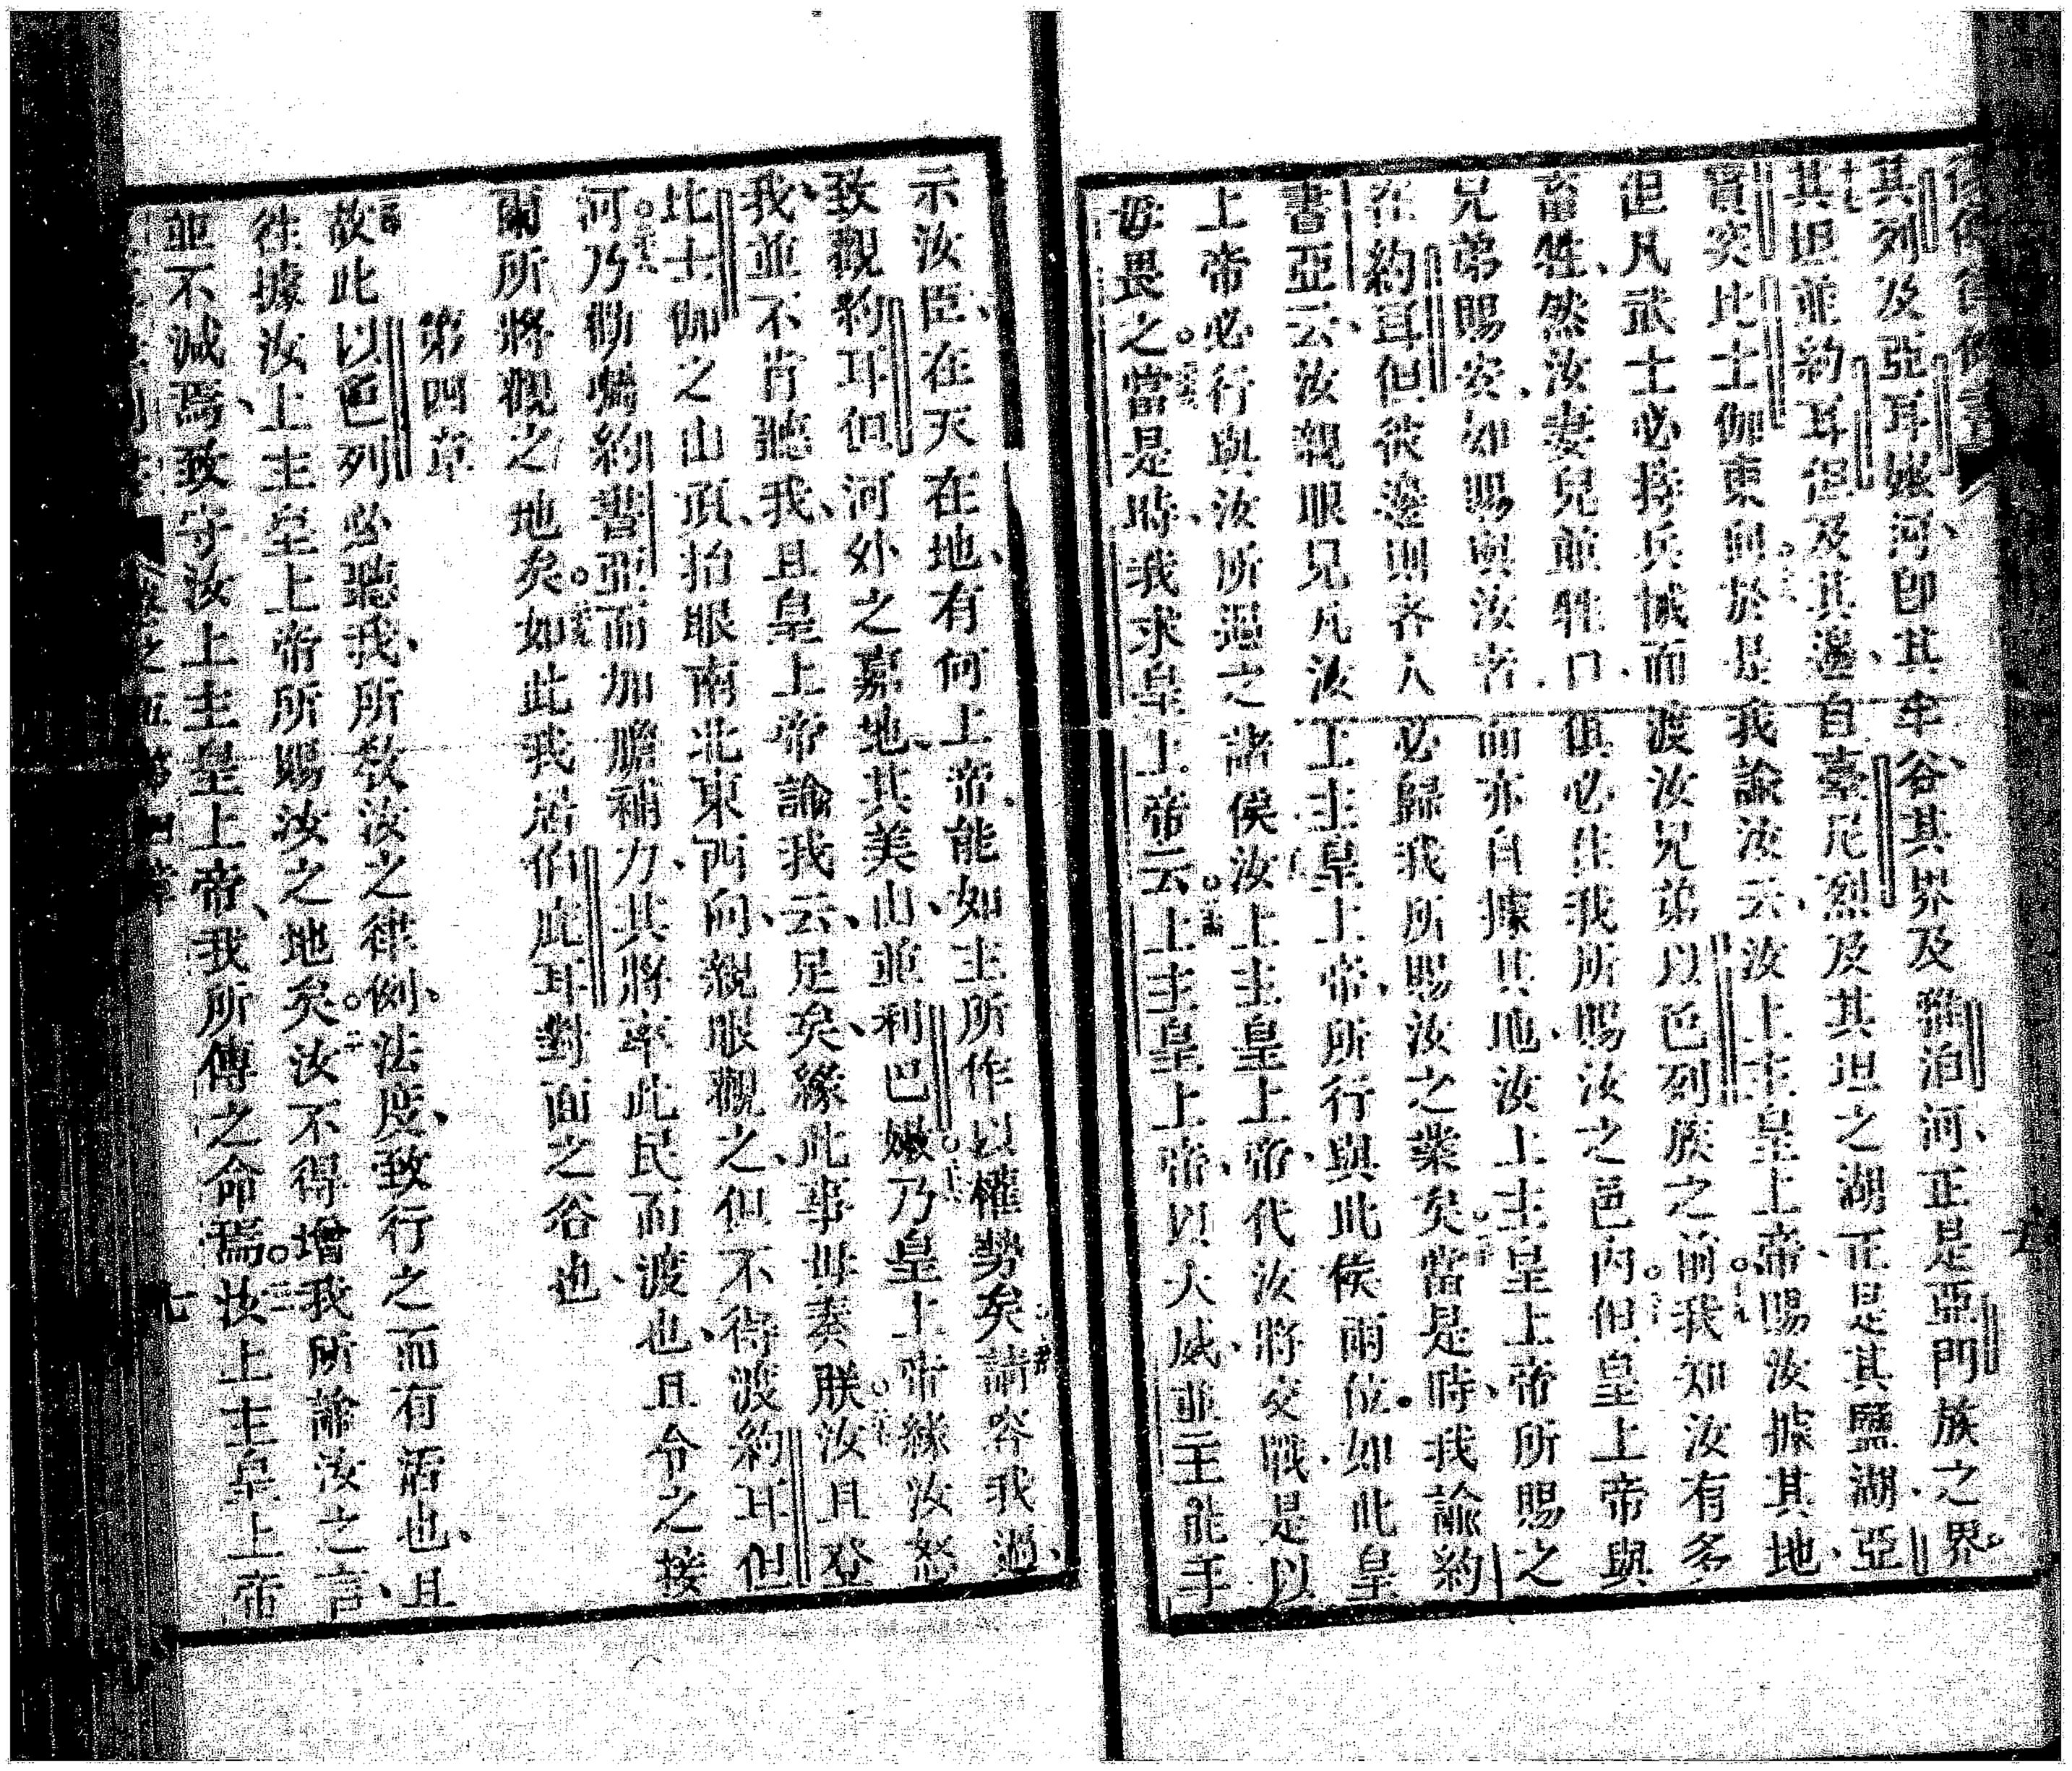 其列及亞耳嫩河、卽其半谷其界及雅泊河、正是亞門族之界。
其坦並約耳但及其邊、自基尼烈及其坦之湖正是其鹽湖、亞
實突比士伽東向。於是我諭汝云、汝上主皇上帝賜汝據其地、
但凡武士必持兵械而渡汝兄弟以色列族之前。我知汝有多
畜牲、然汝妻兒並牲口、俱必住我所賜汝之邑內。但皇上帝與
兄弟賜安、如賜與汝者、而亦自據其地、汝上主皇上帝所賜之
在約耳但彼邊、則各人必歸我所賜汝之業矣。當是時、我諭約
書亞云、汝親眼見凡汝上主皇上帝、所行與此侯兩位、如此皇
上帝必行與汝所過之諸侯。汝上主皇上帝、代汝將交戰、是以
毋畏之。當是時、我求皇上帝云、上主皇上帝、以大威並至能手
示汝臣、在天在地、有何上帝、能如主所作以權勢矣。請容我過、
致觀約耳但河外之嘉地、其美山、並利巴嫩。乃皇上帝緣汝怒
我、並不肯聽我、且皇上帝諭我云、足矣、緣此事毋奏朕。汝且登
比士伽之山頂、抬眼南北東西向、親眼觀之、但不得渡約耳但
河。乃勸囑約書亞而加膽補力、其將率此民而渡也、且令之接
爾所將觀之地矣。如此我居伯比耳對面之谷也、
第四章
故此以色列必聽我、所教汝之律例、法度、致行之而有活也、且
往據汝上主皇上帝所賜汝之地矣。汝不得增我所諭汝之言、
並不減焉、致守汝上主皇上帝、我所傳之命焉。汝上主皇上帝